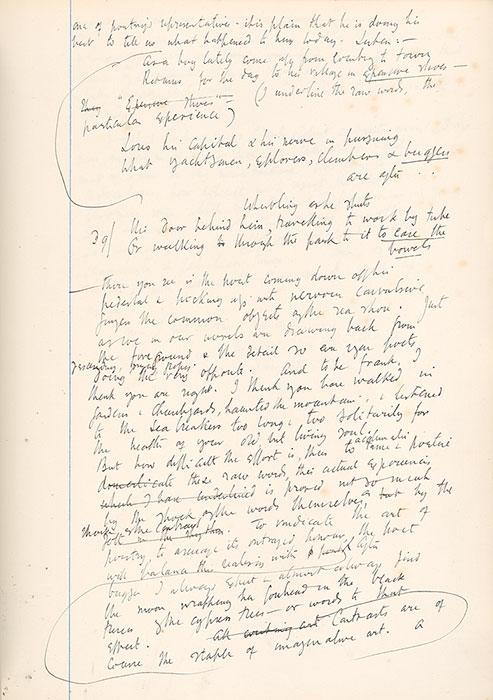 one of poetry's representatives - it is plain that he is doing his
best to tell us what happened to him today. Listen:—
As a boy lately come up from country to town
Returns for the day to his village in expensive shoes —
(I underline the raw words, the
"Expensive shoes" —
particular experience)
Loses his capital & his nerve in pursuing
What yachtsmen, explorers, climbers & buggers
are after ...
Whistling as he shuts
39/ His door behind him, travelling to work by tube
Or walking to through the park to it to ease the
bowels
There you see is the poet coming down off his
pedestal & picking up with nervous convulsive
fingers the common objects of the sea shore. Just
as we in our novels are drawing back from
the foreground & the detail so are you poets
going the very opposite. And to be frank, I
think you are right. I think you have walked in
gardens & churchyards, haunted the mountains, & listened
to the sea breakers too long, too solitarily for
the health of your old, but living soul.
But how difficult the effort is, thus to tame & poetise
acclimatise
domesticate these raw words, this actual experience,
which I have underlined is proved not so much
by the shock of the words themselves but by the
shock of the contrast
left in the rhythm. To vindicate the art of
poetry to assuage its outraged honour, the poet
will balance the realities with a After
bugger I always expect & almost always find
the moon, wreathing her forehead in the black
tresses of the cypress trees — or words to that
effect. All writing art Contrasts are of
course the staple of imaginative art. A